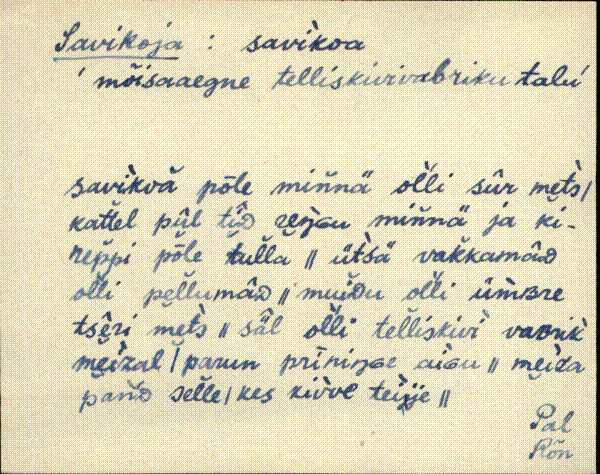 Savikoja : savìkoa
'mõisaaegne telliskivivabriku talu'
savìkvă pōle miňnä ol̆li sûr mèts/
kat̆tel pŭl tîᴅ reŋ̀ɢu miňnä ja ki-
rep̆pi pōle tul̆la // ütsä vak̆kamâᴅ
ol̆li pel̆lumâᴅ // muĭdu ol̆li ümʙre
tsèri mèts // säl ol̆li tel̆liskivì vaʙrik̀
meĭzal / parun prīniŋ̀ɢe aìɢu // meĭza
paňᴅ selle / kes kivve teìje //
Pal
Rõn